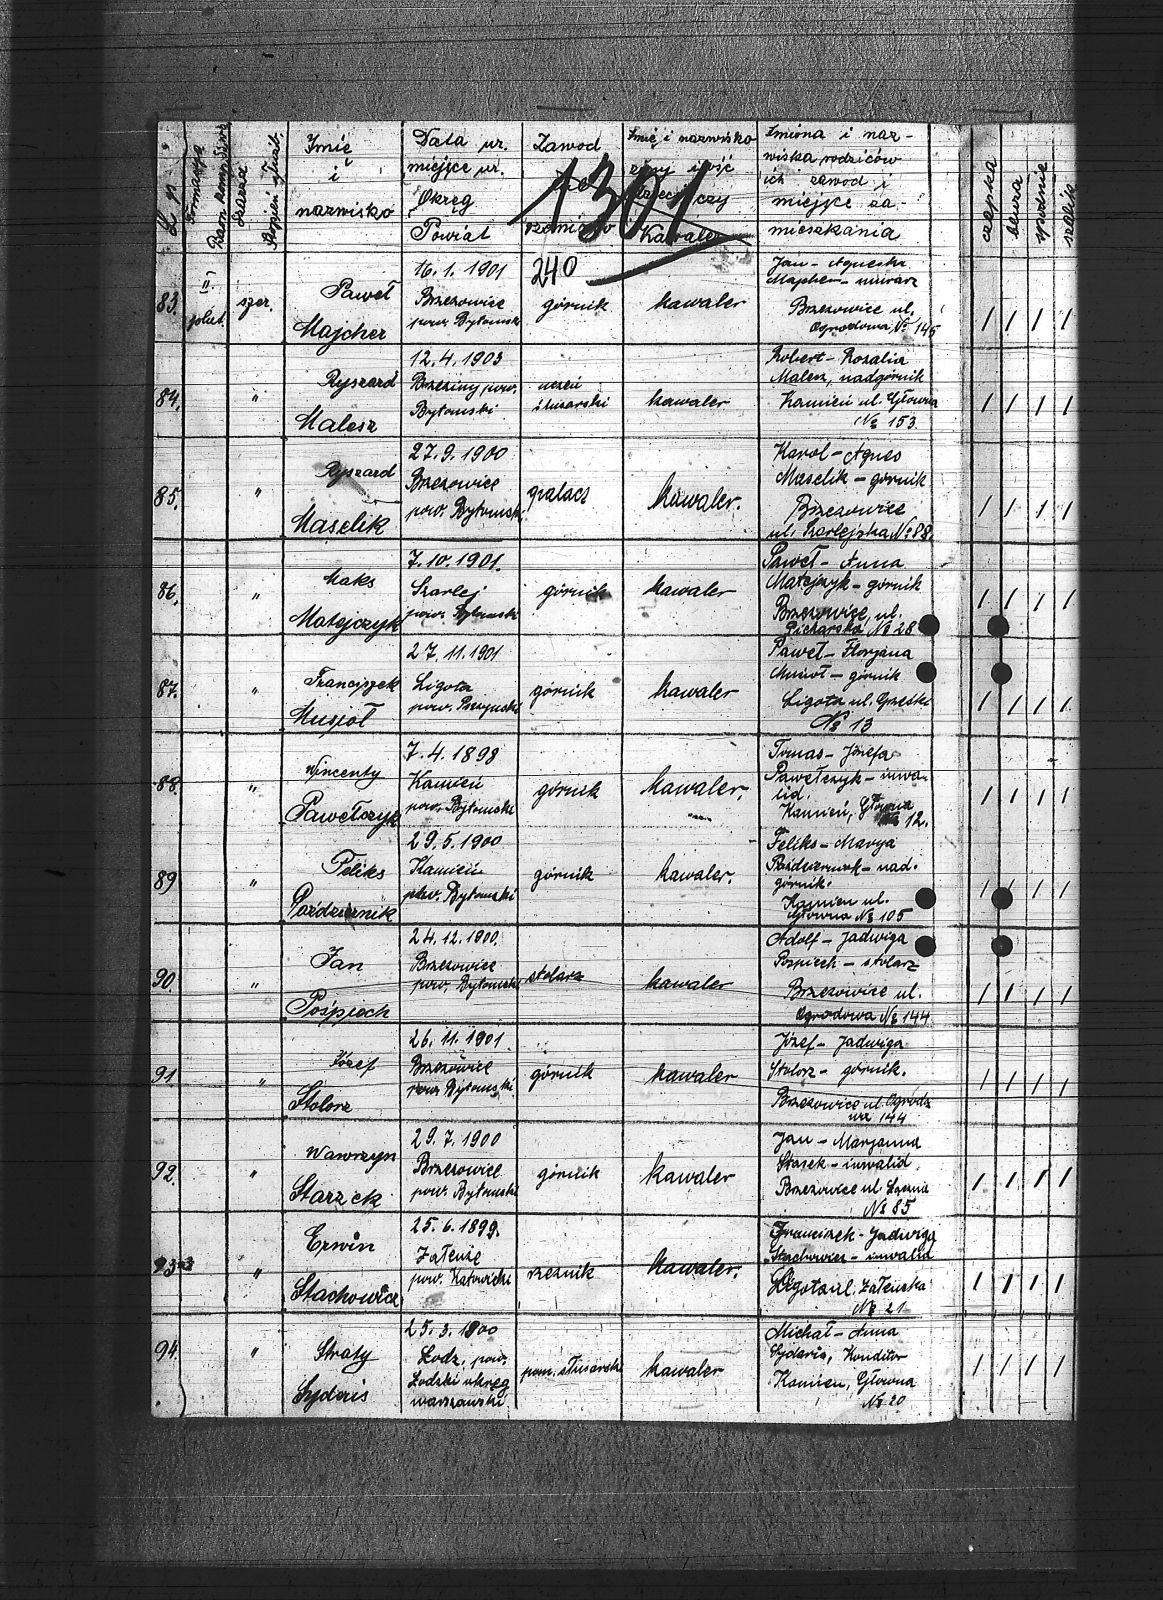 L. p.
Formacja
Baon kompanja
Szarża
Stopień funk.
Imię
i
nazwisko
Data ur.
miejsce ur.
Okręg
Powiat
Zawód
rzemiosło
Imię i nazwisko
żony ilość
dzieci czy
Kawaler
Imiona i naz-
wiska rodziców
ich zawód i
miejsce za-
mieszkania
czapka
bluza
spodnie
szalik
1301
240
83. II plut. szer.
Paweł
Majcher
16.1.1901
Brzezowice
pow. Bytomski
górnik
kawaler
Jan - Agneska
Majcher - murarz
Brzezowice ul.
Ogrodowa № 145
/ / / /
84. "
Ryszard
Malesz
12.4.1903
Brzeziny pow.
Bytomski
uczeń
ślusarski
kawaler
Robert - Rozalia
Malesz, nadgórnik
Kamień ul. Główna
№ 153
/ / / /
85. "
Ryszard
Maselik
27.9.1900
Brzezowice
pow. Bytomski
kawaler.
Karol - Agnes
Maselik - górnik
Brzezowice
ul. Szarlejska № 88.
/ / / /
86. "
Maks
Matejczyk
7.10.1901.
Szarlej
pow. Bytomski
górnik
kawaler
Paweł - Anna
Matejczyk - górnik
Brzezowice, ul.
Piekarska № 28
/ / / /
87. "
Franciszek
Musioł
27.11.1901
Ligota
pow. Pszczyński
górnik
kawaler
Paweł - Florjana
Musioł - górnik
Ligota ul.
№ 13
/ / / /
88. "
Wincenty
Pawełczyk
7.4.1898
Kamień
pow. Bytomski
górnik
kawaler.
Tomas - Józefa
Pawełczyk - inwa-
lid.
Kamień, Główna
№ 12.
/ / / /
89 "
Feliks
Październik
29.5.1900
Kamień
pow. Bytomski
górnik
kawaler.
Feliks - Marya
Październik - nad-
górnik.
Kamień ul.
Główna № 105
/ / / /
90. "
Jan
Pośpiech
24.12.1900.
Brzezowice
pow. Bytomski
stolarz
kawaler
Adolf - Jadwiga
Pospiech - stolarz
Brzezowice ul.
Ogrodowa № 144
/ / / /
91 "
Józef
Stolorz
26.11.1901
Brzezowice
pow. Bytomski.
górnik
kawaler
Józef - Jadwiga
Stolorz - górnik.
Brzezowice ul. Ogrodo
wa 144
/ / / /
92. "
Wawrzyn
Starzek
29.7.1900
Brzezowice
pow. Bytomski
górnik
kawaler
Jan - Marjanna
Stasek - inwalid.
Brzezowice ul.
№ 85
/ / / /
93 "
Erwin
Stachowicz
25.6.1899.
Załeuże
pow. Katowicki
rzeźnik
kawaler.
Franciszek - Jadwiga
Stachowicz - inwalid
Ligota ul. Załeuska
№ 21
/ / / /
94. "
Syderis
25.3.1900
Łodz, pow.
Łodzki okręg
warszawski
pom. ślusarski
kawaler
Michał - Anna
Konditor
Kamien, Głowna
№ 20
/ / / /